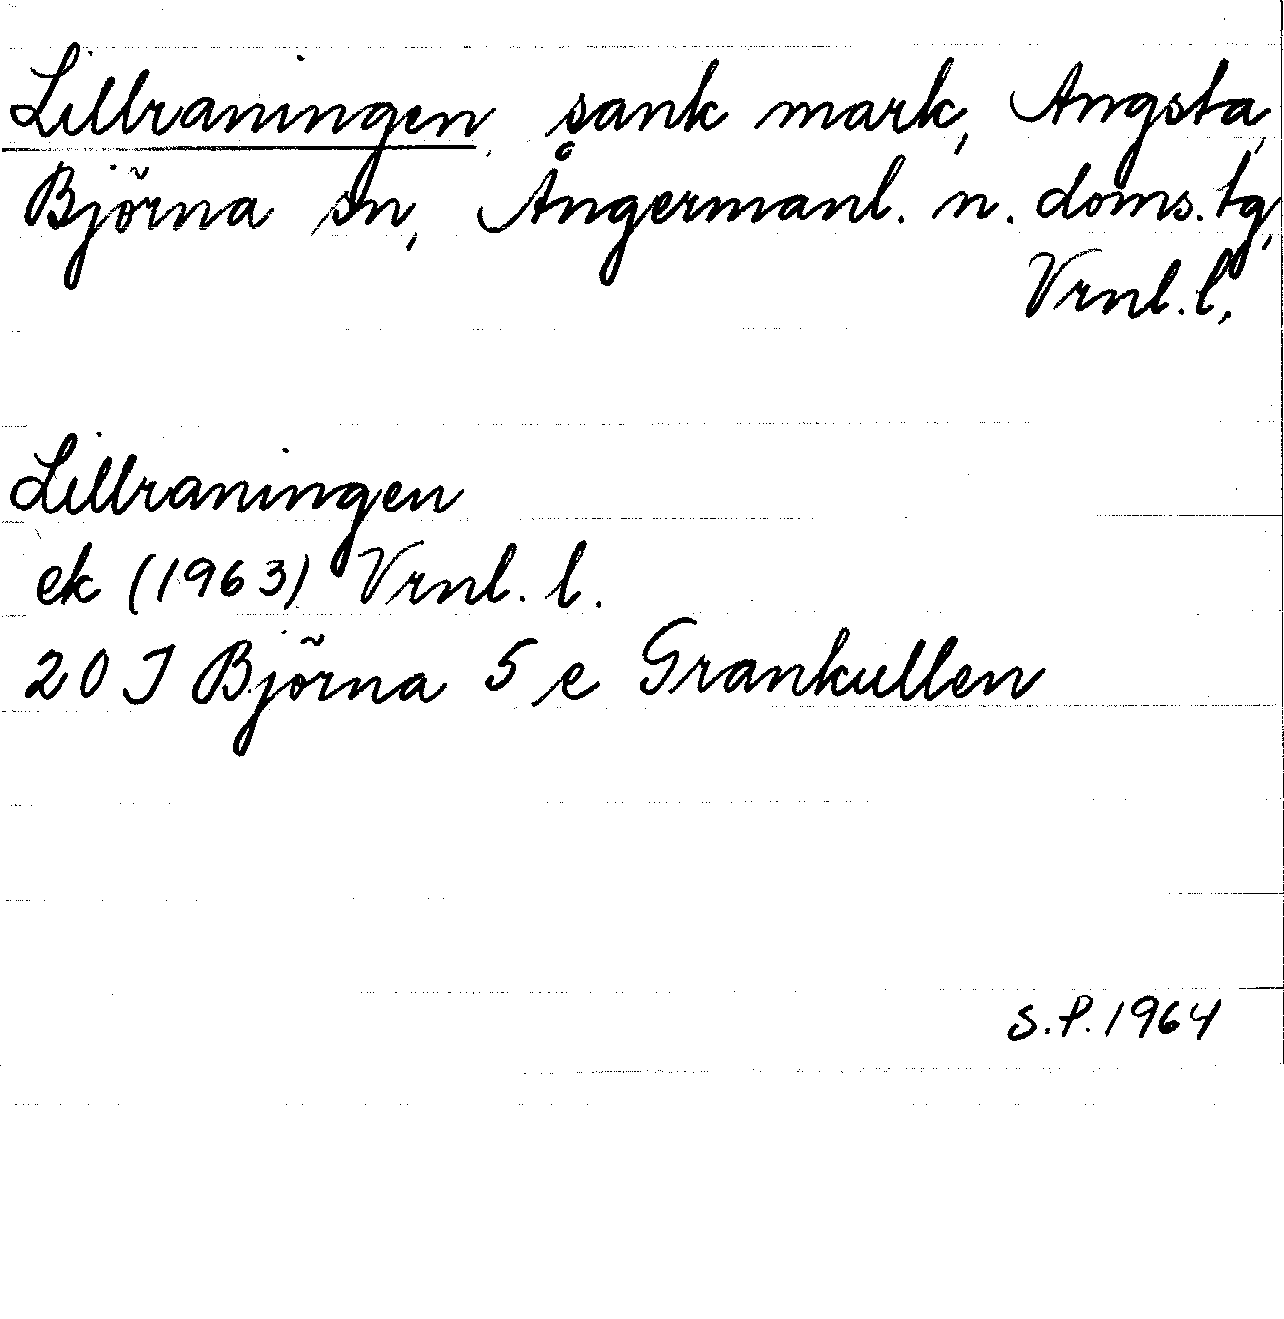 Lillraningen, sank mark, Angsta,
Björna sn, Ångermanl. n. doms. tg,
Vrnl. l.
Lillraningen
ek (1963) Vrnl. l.
20 J Björna 5 e Grankullen
S.P. 1964